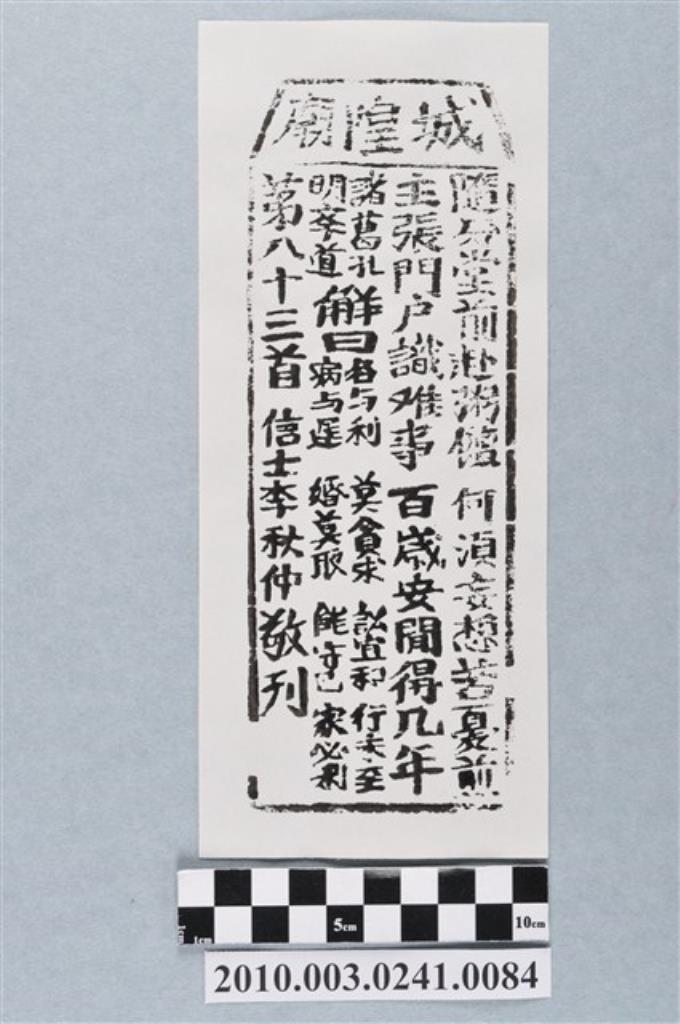 城隍廟
隨分堂前赴粥饘 何湏妄想苦憂前
主張門户識难事 百歲安閒得几年
諸葛孔明卒道
解曰
各与利 莫貪求 訟宜和 行未至
病与遲 婚莫取 能守己 家必利
第八十三首 信士李秋仲敬刊
5cm
10cm
1cm
1cm
2010.003.0241.0084